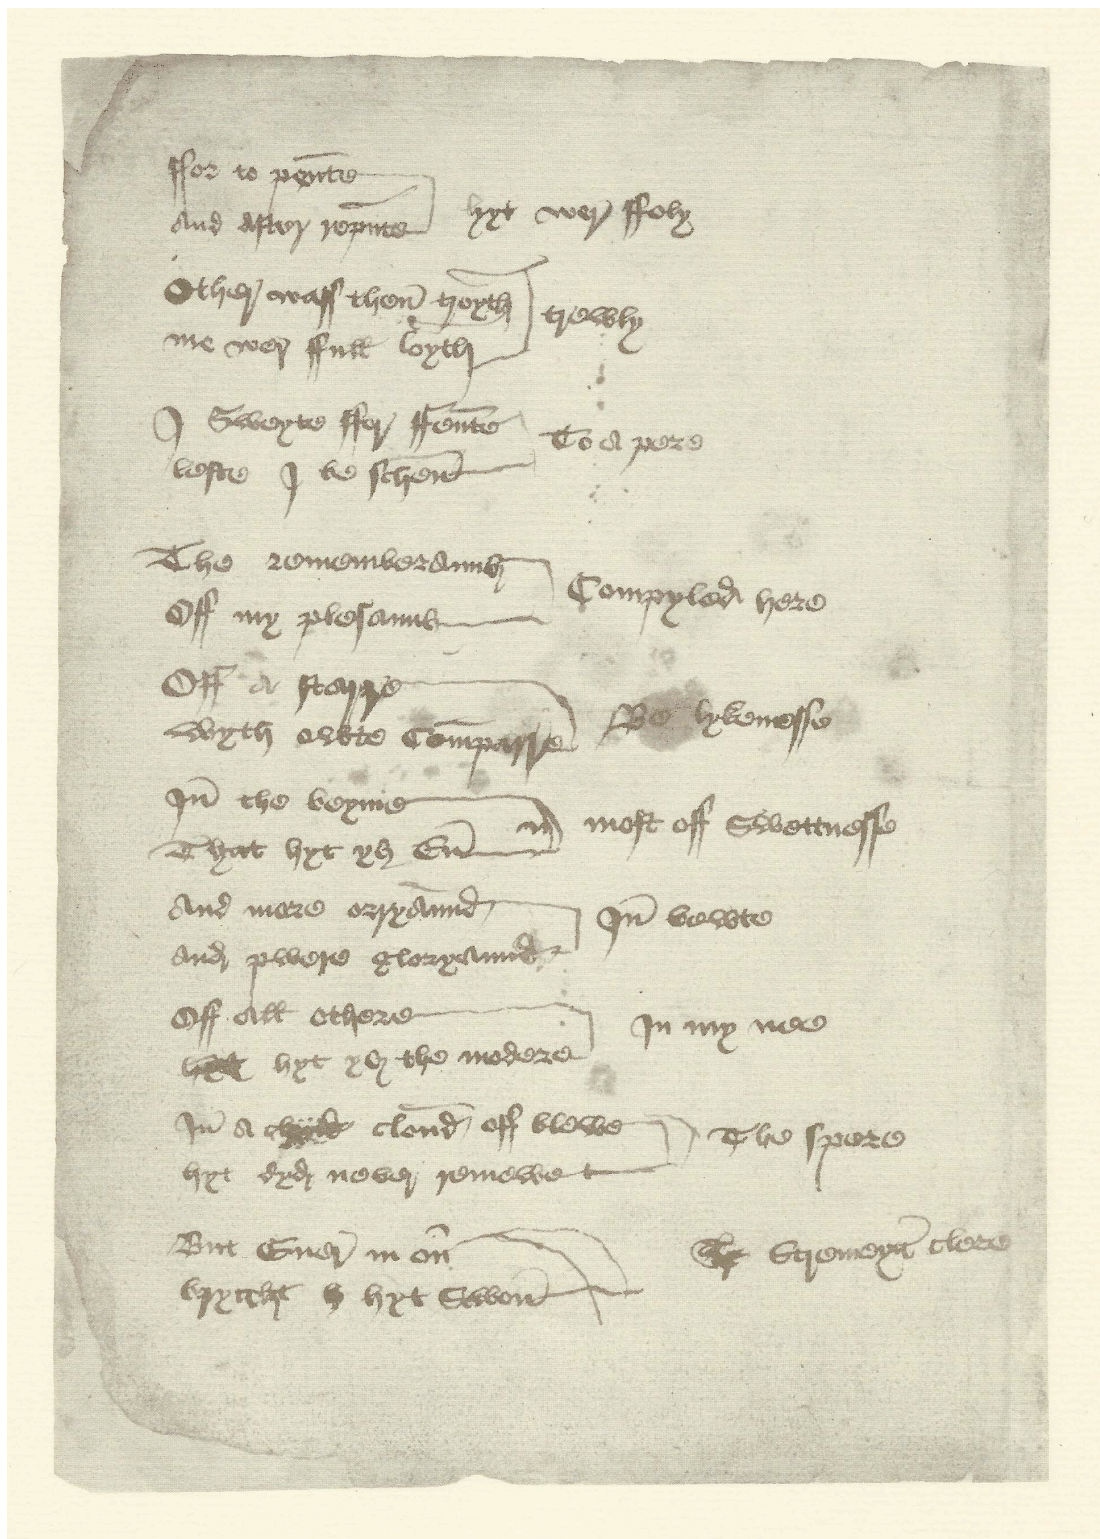 ffor to pente
And after repente
hyt wer ffoly
Other wass then troyth
me wer ffull loyth
trewly
I Sweyte ffer ffente
leste I be schent
To a pere
The rememberauns
Off my plesauns
Compyled here
Off a sterre
Wyth owte Comparre
Be lykenesse
In the beyme
That hyt ys
most off Swettnesse
And more orryaund
and pwere gloryaund
In bewte
Off all othere
hyt ys the modere
In my nee
In a cloud off blewe
hyt dyd never remewe
The spere
But Ever in on
bryght hyt Schon
Stremeys clere